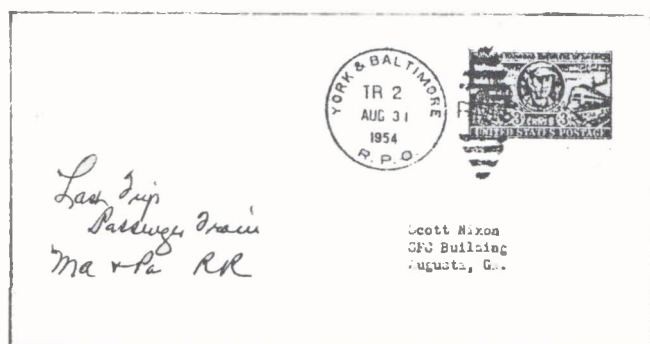 YORK & BALTIMORE
TR 2
AUG 31
1954
R.P.O.
3¢ 3¢
UNITED STATES POSTAGE
Last Trip
Passenger Train
Ma & Pa RR
Scott Nixon
Building
Augusta, Ga.